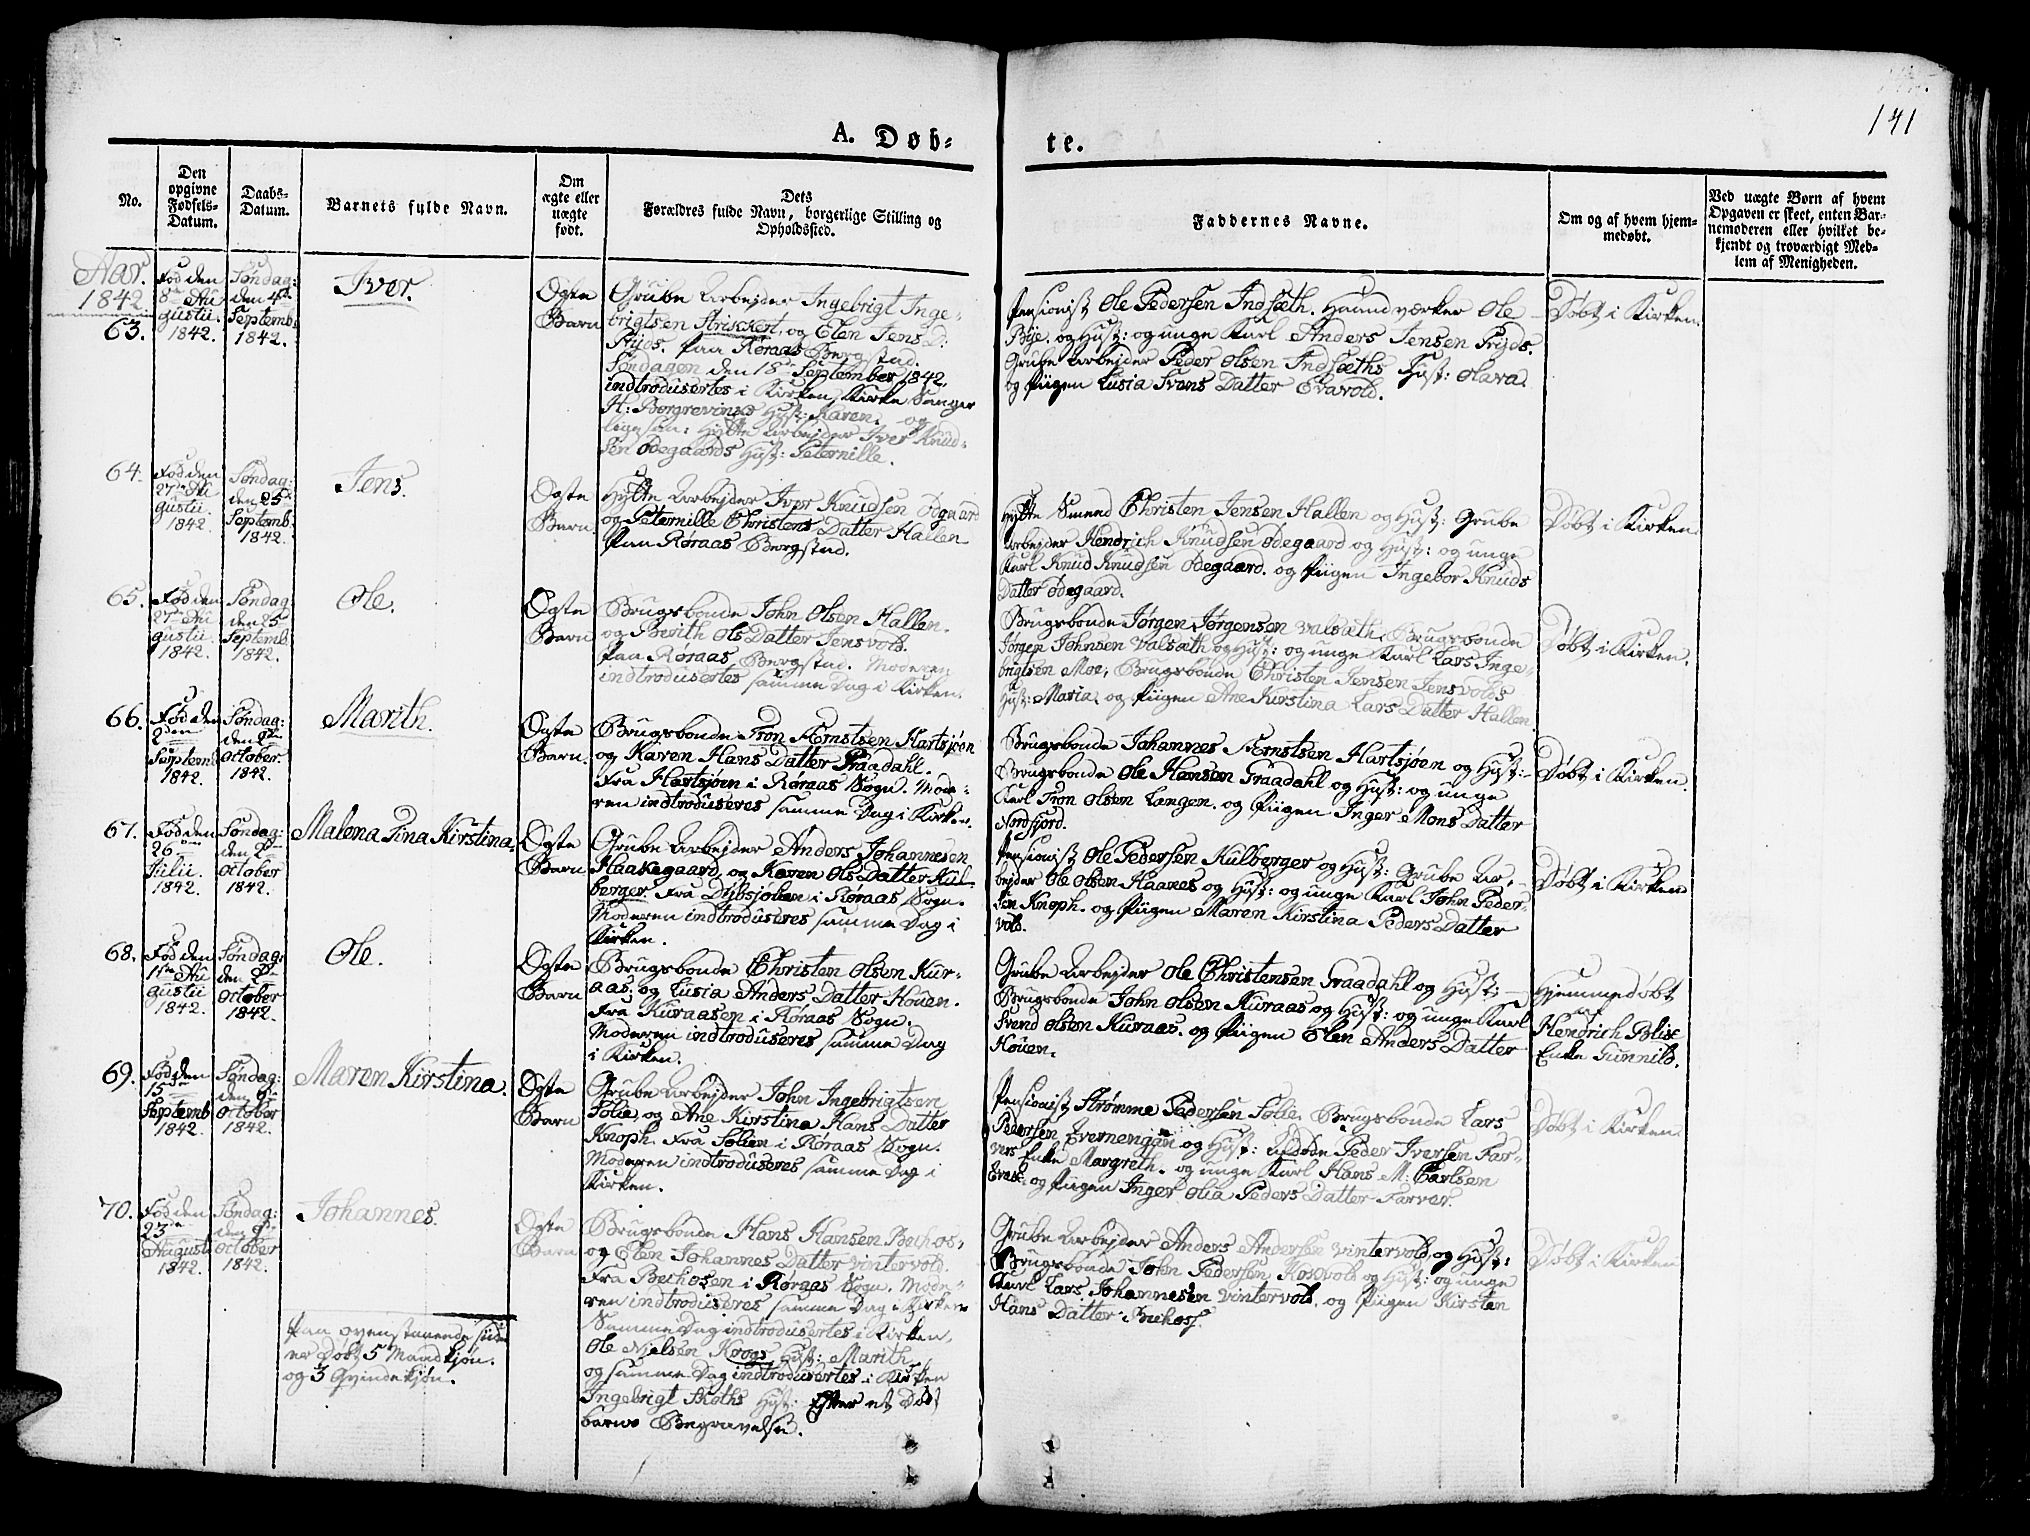 141
A. Døb-
te.
No.
Den opgivne Fødsels-Datum.
Daabs-Datum.
Barnets fulde Navn.
Om ægte eller uægte født.
Dets Forældres fulde Navn, borgerlige Stilling og Opholdssted.
Faddernes Navne.
Om og af hvem hjemmedøbt.
Ved uægte Børn af hvem Opgaven er skeet, enten Barnemoderen eller hvilket bekjendt og troværdigt Medlem af Menigheden.
Aar.
1842
63.
Fød den
8de Au
gustii.
1842.
Søndag:
den 4de
Septemb:
1842.
Iver.
Ægte
Barn
Grube Arbejder Ingebrigt Inge-
brigtsen Strickert, og Elen Jens D:
Pryds. Paa Røraas Bergstad.
Søndagen den 18de September 1842.
indtroduseertes i Kirken, Kirke Sanger
H: Borgrevinks Hust: Karen. og
ligesaa: Hytte Arbejder Iver Knud-
sen Ødegaards Hust: Peternille.
Pensionist Ole Pedersen Indsæth. Haandværker Ole
Bye. og Hust: og unge Karl Anders Jensen Pryds.
Grube Arbejder Peder Olsen Indsæths Hust: Olava.
og Piigen Lusia Svens Datter Evavold.
Døbt i Kirken.
64.
Fød den
27de Au
gustii.
1842.
Søndag:
den 25de
Septemb.
1842.
Jens.
Ægte
Barn.
Hytte Arbejder Iver Knudsen Ødgaard
og Peternille Christens Datter Hallen
Paa Røraas Bergstad.
Hytte Smed Christen Jensen Hallen og Hust: Grube
Arbejder Hendrich Knudsen Ødegaard og Hust: og unge
Karl Knud Knudsen Ødegaard. og Piigen Ingebor Knuds
Datter Ødegaard.
Døbt i Kirken.
65.
Fød den
27de Au
gustii
1842.
Søndag
den 25
Septemb
1842.
Ole.
Ægte
Barn
Brugsbonde John Olsen Hallen.
og Berith Ols Datter Jensvold.
Paa Røraas Bergstad. Moderen
indtrodusertes samme Dag i Kirken.
Brugsbonde Jørgen Jørgensen Valsæth, Brugsbonde
Jørgen Johnsen Valsæth og Hust: og unge Karl Lars Inge-
brigtsen Moe, Brugsbonde Christen Jensen Jensvolds
Hust: Maria, og Piigen Ane Kirstina Lars Datter Hallen
Døbt i Kirken.
66.
Fød den
2den
Septemb
1842.
Søndag:
den 9de
October.
1842.
Marith.
Ægte
Barn.
Brugsbonde Tron Berntsen Hartsjøn
og Karen Hans Datter Graadahl.
Fra Hartsjøen i Røraas Sogn. Mode-
ren indtroduseres samme Dag i Kirken.
Brugsbonde Johannes Berntsen Hartsjøen og Hust:
Brugsbonde Ole Hansen Graadahl og Hust: og unge
Karl Tron Olsen Langen. og Piigen Inger Mons Datter
Nordfjord.
Døbt i Kirken.
67.
Fød den
26de
Julii.
1842.
Søndag:
den 9de
October
1842.
Malena Pina Kirstina.
Ægte
Barn
Grube Arbejder Anders Johannesen
Haakegaard, og Karen Ols Datter Kul
berger. Fra Dybsjøhen i Røraas Sogn.
Moderen indtroduseres samme Dag i
Kirken.
Pensionist Ole Pedersen Kulberger og Hust: Grube Ar-
bejder Ole Olsen Haanes og Hust: og unge Karl John Peder-
sen Knoph. og Piigen Maren Kirstina Peders Datter
Vold.
Døbt i Kirken
68.
Fød den
11te Au
gustii
1842.
Søndag:
den 9de
October
1842.
Ole.
Ægte
Barn
Brugsbonde Christen Olsen Kur-
aas, og Lusia Anders Datter Houen.
Fra Kuraasen i Røraas Sogn.
Moderen indtroduseres samme Dag
i Kirken.
Grube Arbejder Ole Christensen Graadahl og Hust:
Brugsbonde John Olsen Kuraas og Hust: og unge Karl
Svend Olsen Kuraas. og Piigen Elen Anders Datter
Houen.
Hjemmedøbt
af
Hendrich Blix
Enke Gunnild.
69.
Fød den
15de
Septemb
1842.
Søndag:
den 9de
October
1842.
Maren Kirstina.
Ægte
Barn
Grube Arbejder John Ingebrigtsen
Solie, og Ane Kirstina Hans Datter
Knoph. Fra Solien i Røraas Sogn.
Moderen indtroduseres samme Dag i
Kirken.
Pensionist Strømme Pedersen Solie, Brugsbonde Lars
Pedersen Evernengan og Hust: Afdøde Peder Iversen Far-
vers Enke Margreth. og unge Karl Hans M: Carlsen
og Piigen Inger Olia Peders Datter Farver.
Døbt i Kirken
70.
Fød den
23de
Augusti
1842.
Søndag:
den 9de
October
1842.
Johannes.
Ægte
Barn
Brugsbonde Hans Hansen Bechos,
og Elen Johannes Datter Vintervold.
Fra Bechosen i Røraas Sogn. Mode-
ren indtroduseres samme Dag i Kirken
Samme Dag indtrodusertes i Kirken,
Ole Nielsen Krogs Hust: Marith.
og samme Dag indtrodusertes i Kirken
Ingebrigt Skoths Hust: Efter et Død
barns Begravelse.
Grube Arbejder Anders Andersen Vintervold, og Hust:
Brugsbonde John Pedersen Kosvold og Hust: og unge
Karl Lars Johannesen Vintervold, og Piigen Kirsten
Hans Datter Bechos.
Døbt i Kirken
Paa ovenstaaende side
er Døbt 5 Mandkjøn.
og 3 Qvindekjøn.